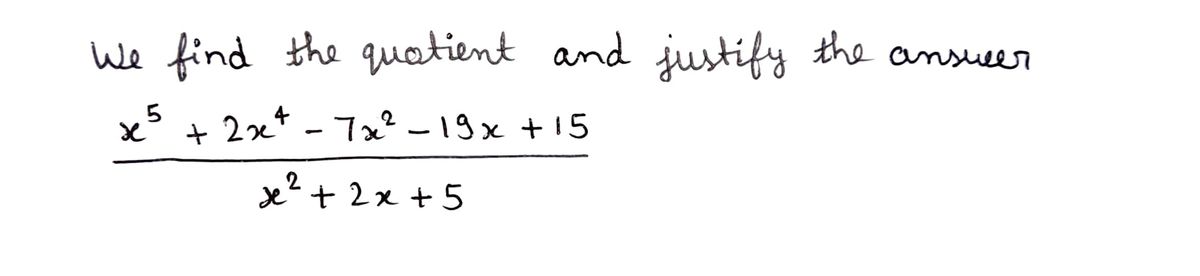 We find the quotient and justify the answer
x⁵ + 2x⁴ - 7x² - 19x + 15
x² + 2x + 5